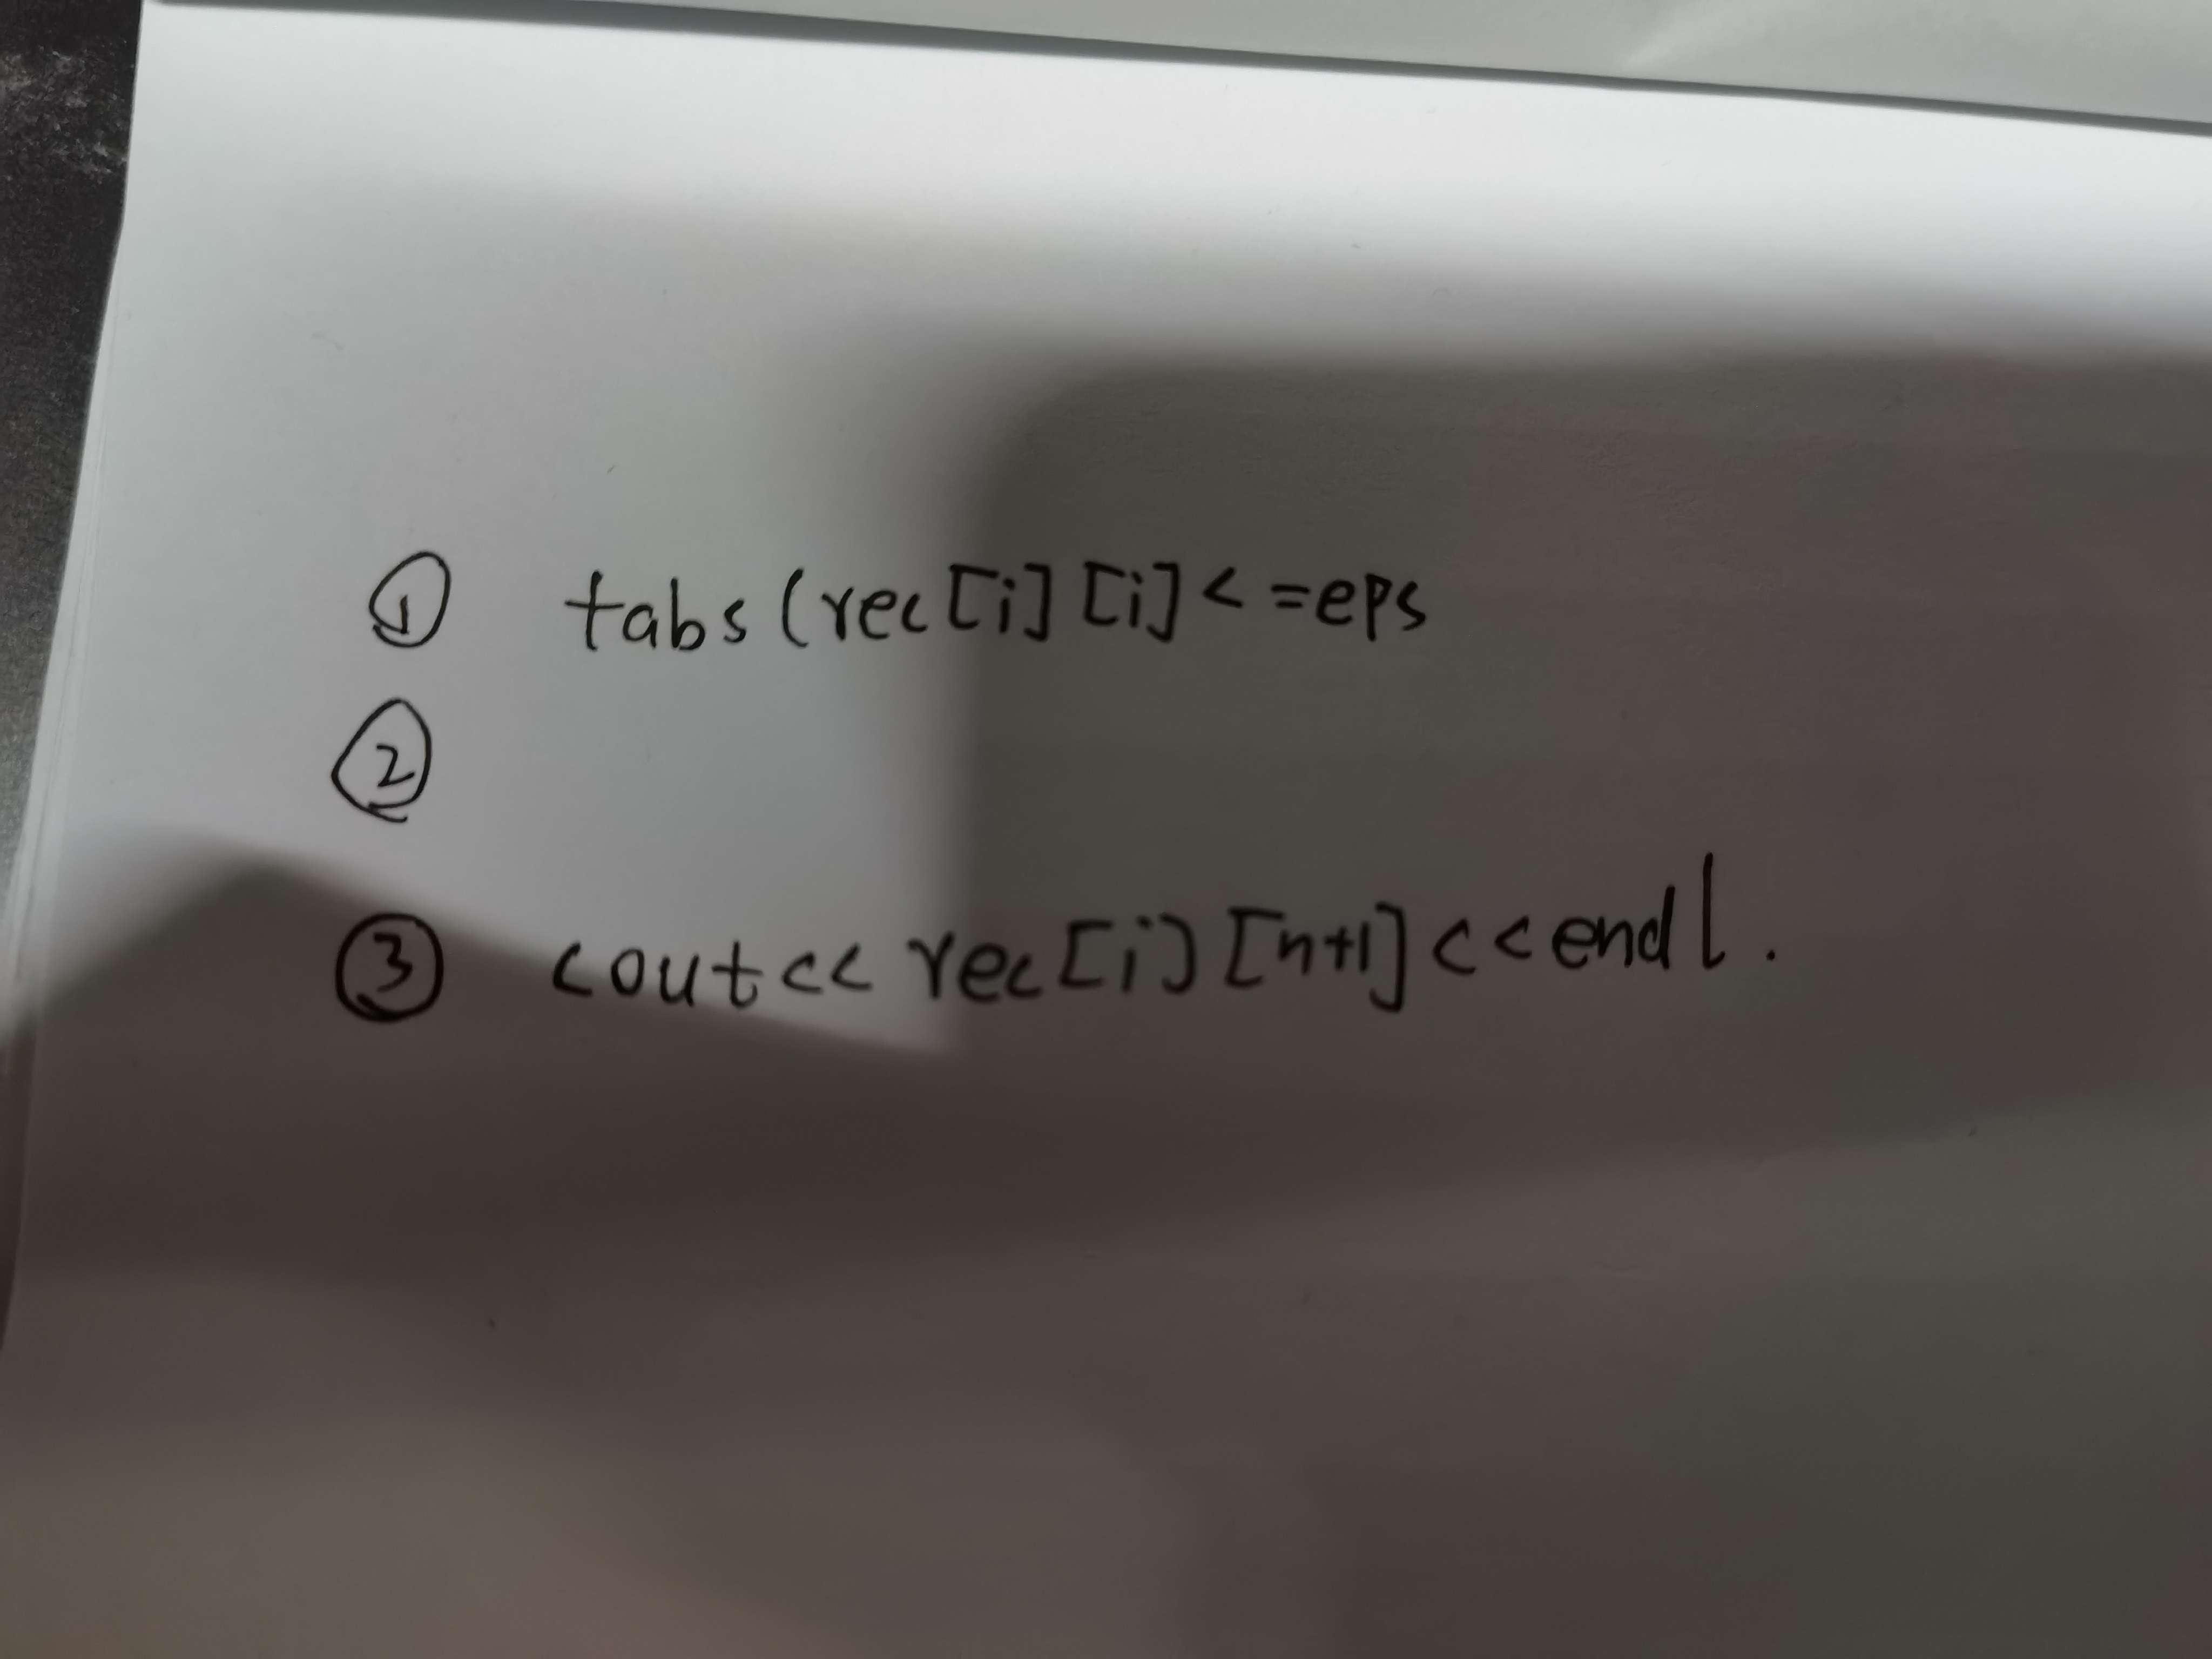 ① tabs(rec[i][i]<=eps
②
③ cout<< rec[i][n+1]<<endl.